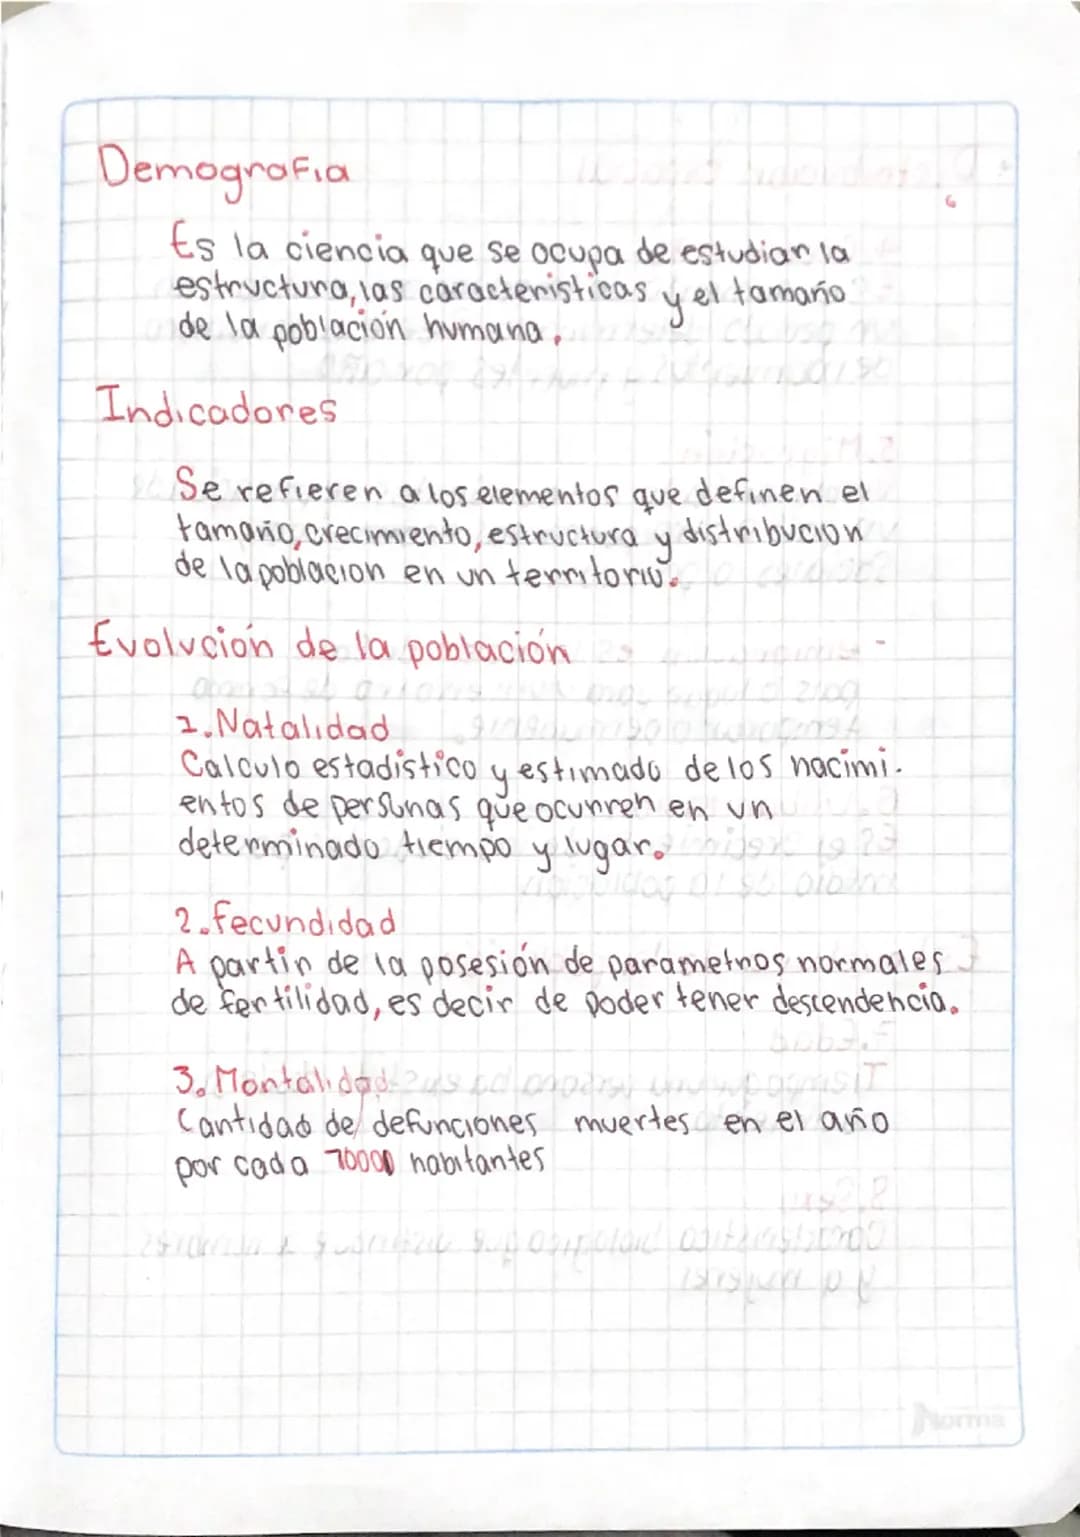 Demografia
Es la ciencia que se ocupa de estudiar la
estructura, las caracteristicas y el tamaño
de la población humana.
Indicadores
Se refieren a los elementos que definen el
tamaño, crecimiento, estructura y distribucion
de la poblacion en un territorio.
Evolución de la población
1. Natalidad
Calculo estadistico y estimado de los nacimi-
entos de personas que ocurren en un
determinado tiempo y lugar.
2. fecundidad
A partir de la posesión de parametros normales
de fertilidad, es decir de poder tener descendencia.
3. Mortalidad
Cantidad de defunciones muertes en el año
por cada 10000 habitantes
Norma